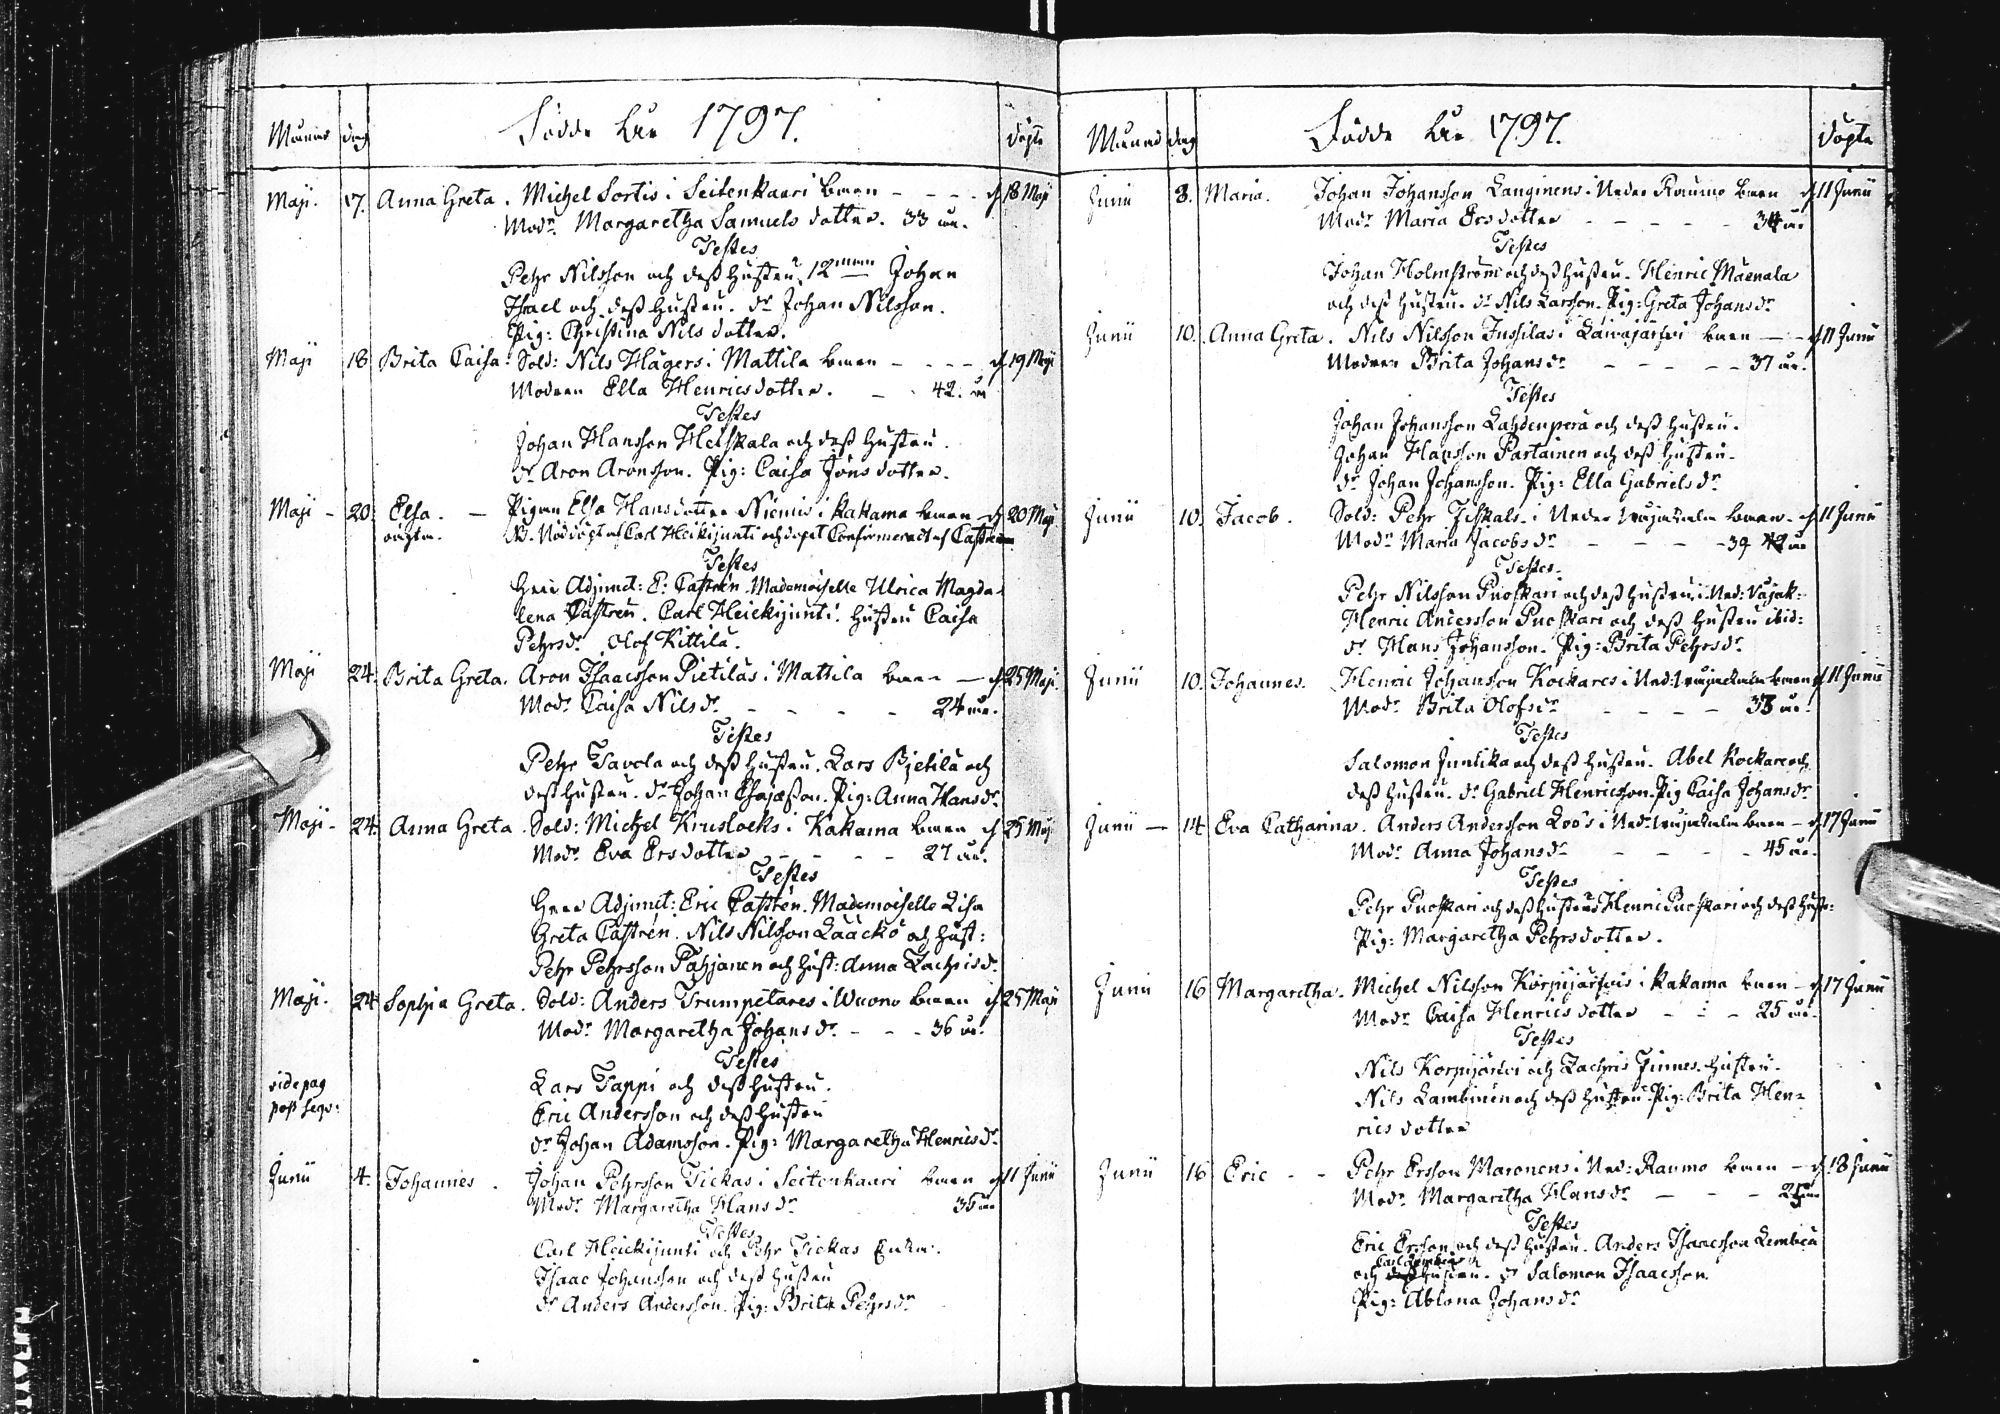 Månad dag Födde År 1797. döpte
Maji. 17. Anna Greta. Michel Sortis i Seitenkaari barn - - - d 18 Maji
Modr Margaretha Samuels dotter. 33 år.
Testes
Pehr Nilsson och dess hustru. 12mann Johan
Isael och dess hustru. dr Johan Nilsson.
Pig: Christina Nils dotter.
Maji 18 Brita Caisa. Sold: Nils Hägers i Mattila barn - - - - d 19 Maji
Modren Ella Henricsdotter. - - 42. år
Testes
Johan Hansson Heiskala och dess hustru.
dr Aron Aronsson. Pig: Caisa Jöns dotter.
Maji - 20. Elsa. - Pigan Elsa Hansdotter Niemis i Kakama barn - d 20 Maji
oächta. NB. Nöddöpt af Carl Heikijunti och döpet Confirmeradt af Castrén
Testes
Herr Adjunct: E: Castrén. Mademoiselle Ulrica Magda-
lena Castrén. Carl Heickijunti. hustru Caisa
Pehrsdr Olof Kittilä.
Maji 24. Brita Greta. Aron Isaacsson Pietiläs i Mattila barn - d 25 Maji.
Modr Caisa Nilsdr - - - - 24 år.
Testes
Pehr Tavola och dess hustru. Lars Pjetilä och
dess hustru. dr Johan Esajæson. Pig: Anna Hansdr
Maji - 24. Anna Greta. Sold: Michel Kruslocks i Kakama barn d 25 Maji
Modr Eva Ersdotter - - - 27 år.
Testes
Herr Adjunct: Eric Castrén. Mademoiselle Lisa
Greta Castrén. Nils Nilsson Lääckö och hust:
Pehr Pehrsson Pahjanen och hust: Anna Zachrisdr
Maji. 24 Sophia Greta. Sold: Anders Trumpetares i Wuono barn d 25 Maji
Modr Margaretha Johansdr - - - 36 år.
Testes
vide pag Lars Tappi och dess hustru.
post seqv: Eric Andersson och dess hustru
dr Johan Adamsson. Pig: Margaretha Henricsdr
Junii 4. Johannes. Johan Pehrsson Tickas i Seitenkaari barn d 11 Junii
Modr Margaretha Hansdr 35 år
Testes
Carl Heickijunti och Pehr Tickas Enka.
Isaac Johansson och dess hustru
dr Anders Andersson. Pig: Brita Pehrsdr
Månad dag Födde År 1797. döpte
Junii 8. Maria. Johan Johansson Langinens i Neder Raumo barn d 11 Junii
Modr Maria Ersdotter - - - - 34 år.
Testes
Johan Holmström och dess hustru. Henric Mäenala
och dess hustru. dr Nils Larsson. Pig: Greta Johansdr
Junii 10. Anna Greta. Nils Nilsson Jussilas i Laivajärfvi barn - - d 11 Junii
Modren Brita Johansdr - - - - 37 år.
Testes
Johan Johansson Lahdenperä och dess hustru.
Johan Hansson Partainen och dess hustru.
dr Johan Johansson. Pig: Ella Gabrielsdr
Junii 10. Jacob. Sold: Pehr Iskals i Neder Vojakala barn - d 11 Junii
Modr Maria Jacobsdr - - - 39 år
Testes.
Pehr Nilsson Puoskari och dess hustru i Ned: Vojak:
Henric Andersson Puoskari och dess hustru ibid:
dr Hans Johansson. Pig: Brita Pehrsdr
Junii 10. Johannes. Henric Johansson Kockares i Ned: Vojakala barn d 11 Junii
Modr Brita Olofsdr - - - - 33 år.
Testes
Salomon Juntika och dess hustru. Abel Kockare och
dess hustru. dr Gabriel Henricsson. Pig Caisa Johansdr
Junii - 14. Eva Catharina. Anders Andersson Loos i Ned: Vojakala barn - d 17 Junii
Modr Anna Johansdr - - - - 45 år.
Testes
Pehr Puoskari och dess hustru Henric Puoskari och dess hustr:
Pig: Margaretha Pehrsdotter.
Junii 16 Margaretha. Michel Nilsson Korpijärfvis i Kakama barn - d 17 Junii
Modr Caisa Henricsdotter - - - 25 år.
Testes
Nils Korpijärfvi och Zachris Finnes hustru.
Nils Lambinen och dess hustru. Pig: Brita Hen-
rics dotter
Junii 16 Eric - - Pehr Ersson Maronens i Ned: Raumo barn - d 18 Junii
Modr Margaretha Hansdr - - - 25 år
Testes
Eric Ersson och dess hustru. Anders Isaacsson Lembiä
och hustru. dr Salomon Isaacsson.
Pig: Ablona Johansdr